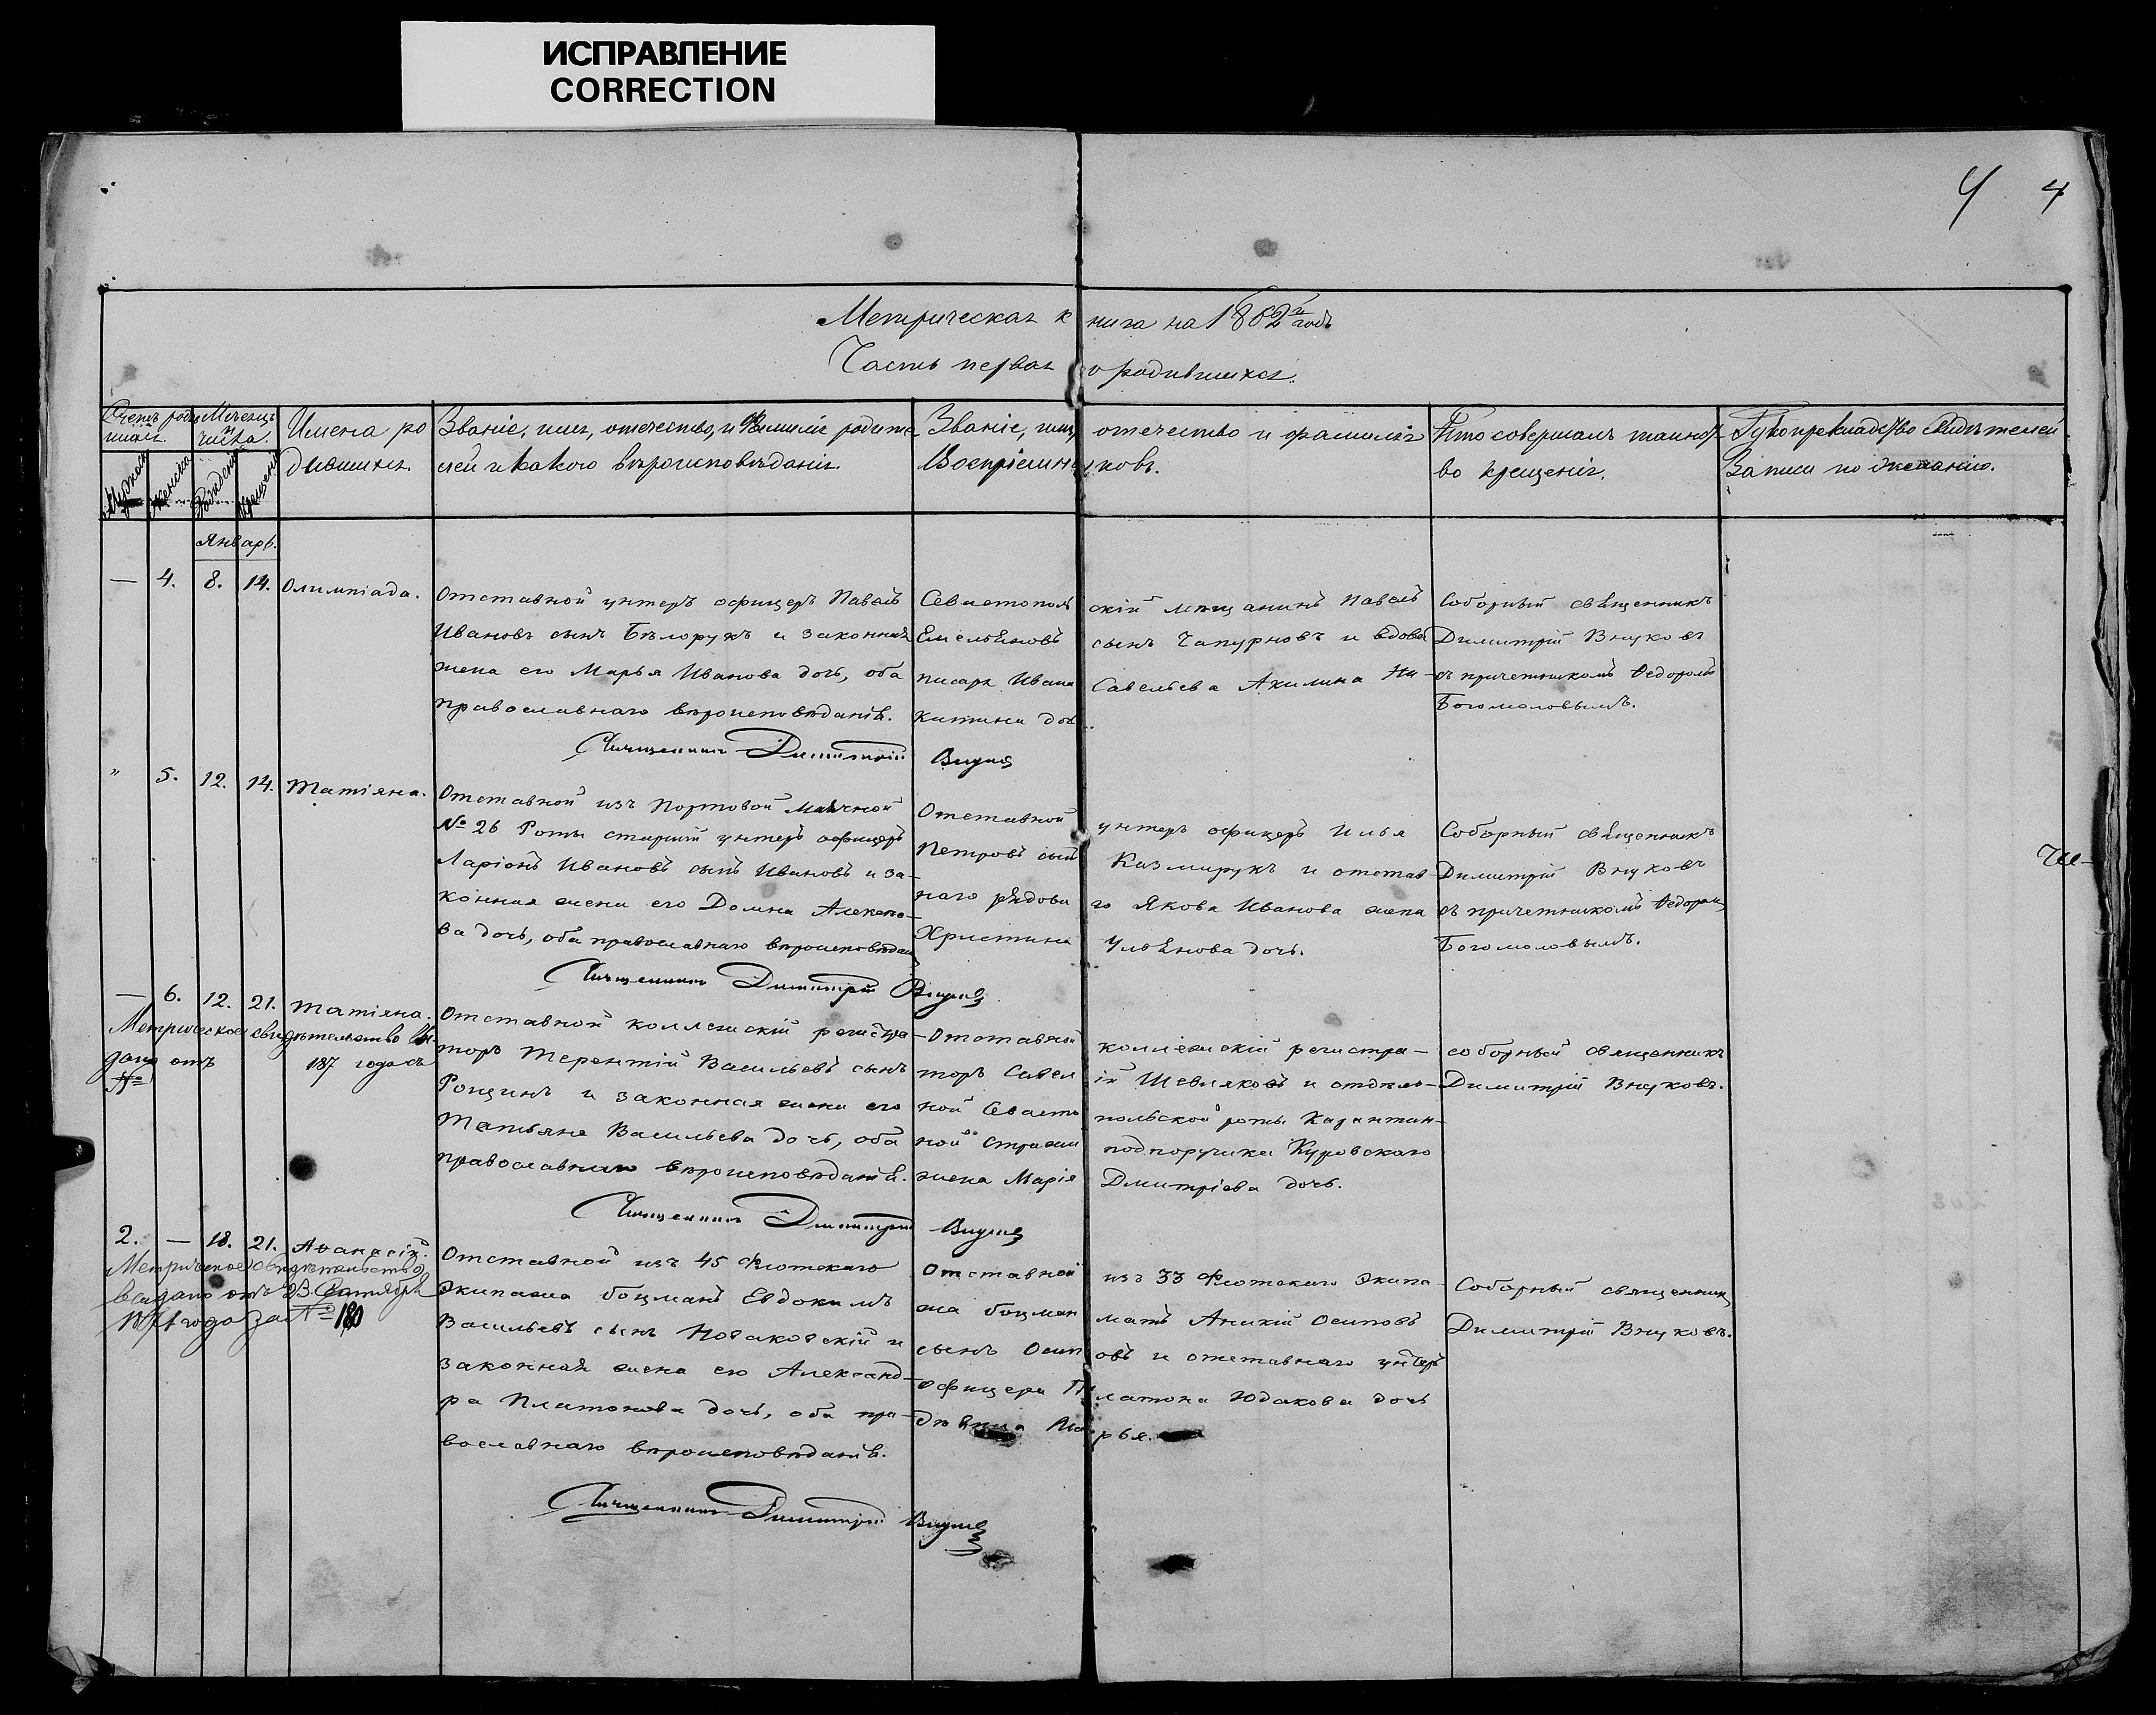 ИСПРАВЛЕНИЕ
CORRECTION
4 4
Метрическая книга на 1862й годъ
Часть первая о родившихся.
Счетъ роди
Мѣсяцъ
и
числа.
Мужеска
Женска
Рожденія
Крещенія
Имена ро
дившихся.
Званіе, имя, отчество, и Фамилія родите
лей и какого вѣроисповѣданія.
Званіе, имя, отчество и фамилія
Воспріемниковъ.
Кто совершалъ таинст
во крещенія.
Рукоприкладство Свидѣтелей
Записи по желанію.
Январь.
— 4. 8. 14. Олимпіада.
Отставной унтеръ офицеръ Павелъ
Ивановъ сынъ Бѣлорукъ и законная
жена его Марья Иванова дочь, оба
православнаго вѣроисповѣданія.
Севастопольскій мѣщанинъ Павелъ
Емельяновъ сынъ Чапурновъ и вдова
писаря Ивана Савельева Акилина Ни-
китина дочь.
Соборный священникъ
Димитрій Внуковъ
съ причетникомъ Федоромъ
Богомоловымъ.
Священникъ Димитрій Внуковъ
" 5. 12. 14. Татіяна.
Отставной изъ Портовой Маячной
№ 26 Роты старшій унтеръ офицеръ
Ларіонъ Ивановъ сынъ Ивановъ и за-
конная жена его Домна Алексѣе-
ва дочь, оба православнаго вѣроисповѣданія
Отставной унтеръ офицеръ Илья
Петровъ сынъ Казмирукъ и отстав-
наго рядоваго Якова Иванова жена
Христина Ульянова дочь.
Соборный священникъ
Димитрій Внуковъ
съ причетникомъ Федоромъ
Богомоловымъ.
Священникъ Димитрій Внуковъ
— 6. 12. 21. Татіяна.
Метрическое свидѣтельство вы-
дано отъ 187 года съ
№
Отставной коллежскій регистра-
торъ Терентій Васильевъ сынъ
Рощинъ и законная жена его
Татьяна Васильева дочь, оба
православнаго вѣроисповѣданія.
Отставной коллежскій регистра-
торъ Савелій Шевляковъ и отдѣль-
ной Севастопольской роты Карантин-
ной стражи подпоручика Куровскаго
жена Марія Дмитріева дочь.
соборный священникъ
Димитрій Внуковъ.
Священникъ Димитрій Внуковъ
2. — 18. 21. Аѳанасій.
Метрическое свидѣтельство
выдано отъ 23. Сентября
1871 года за № 180
Отставной изъ 45 Флотскаго
Экипажа боцманъ Евдокимъ
Васильевъ сынъ Новаковскій и
законная жена его Александ-
ра Платонова дочь, оба пра-
вославнаго вѣроисповѣданія.
Отставной изъ 33 Флотскаго Экипа-
жа боцманматъ Аникій Осиповъ
сынъ Осиповъ и отставнаго унтеръ
офицера Платона Юдакова дочь
дѣвица Марья.
Соборный священникъ
Димитрій Внуковъ.
Священникъ Димитрій Внуковъ